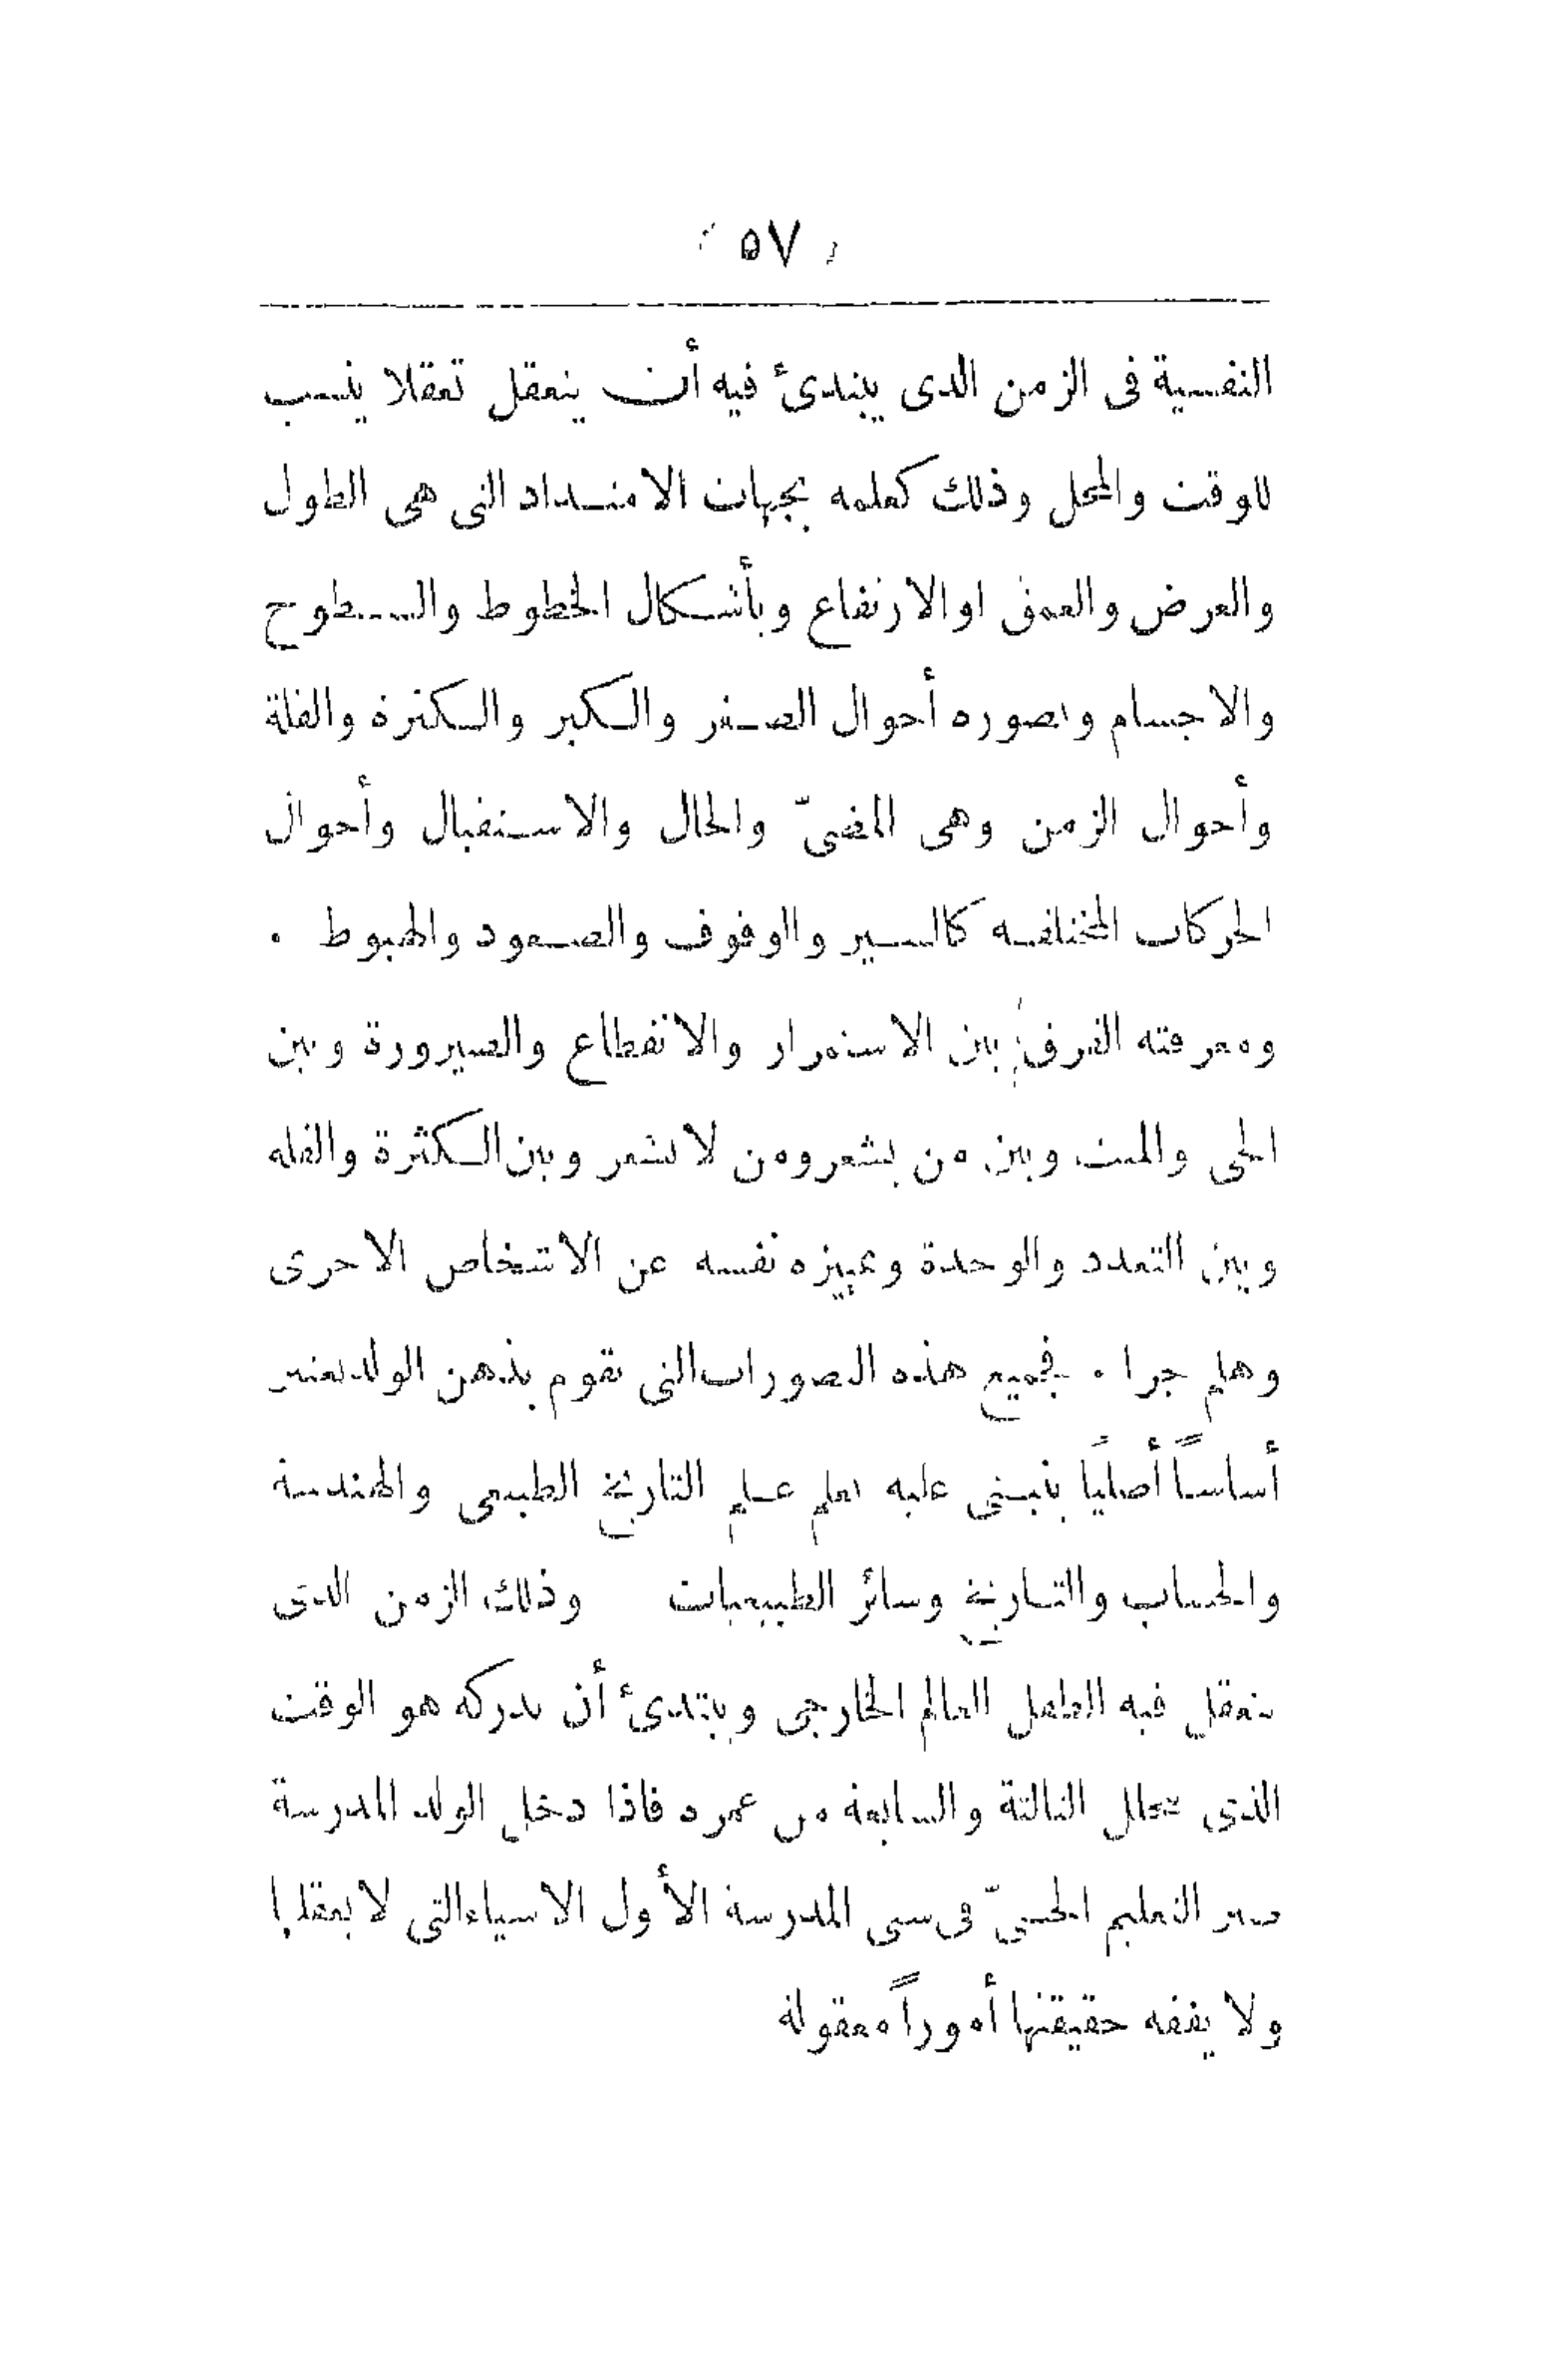 ( ٥٧ )
النفسية فى الزمن الذى يبتدئ فيه أن يتعقل تعقلا ينسب
للوقت والمحل وذلك كعلمه بجهات الامتداد التى هى الطول
والعرض والعمق او الارتفاع وبأشكال الخطوط والسطوح
والاجسام وتصوره أحوال الصغر والكبر والكثرة والقلة
وأحوال الزمن وهى المضىّ والحال والاستقبال وأحوال
الحركات المختلفة كالسير والوقوف والصعود والهبوط .
ومعرفته الفرق بين الاستمرار والانقطاع والصيرورة وبين
الحى والميت وبين من يشعر ومن لا يشعر وبين الكثرة والقلة
وبين التعدد والوحدة وتمييزه نفسه عن الاشخاص الاخرى
وهلم جرا . فجميع هذه التصورات التى تقوم بذهن الولد تعتبر
أساساً أصلياً ينبنى عليه تعلم علم التاريخ الطبيعى والهندسة
والحساب والتاريخ وسائر الطبيعيات وذلك الزمن الذى
يتعقل فيه الطفل العالم الخارجى ويبتدئ أن يدركه هو الوقت
الذى تخلل الثالثة والسابعة من عمره فاذا دخل الولد المدرسة
صير التعليم الحسىّ فى سنى المدرسة الأول الاشياء التى لا يعقلها
ولا يفقه حقيقتها أموراً معقولة